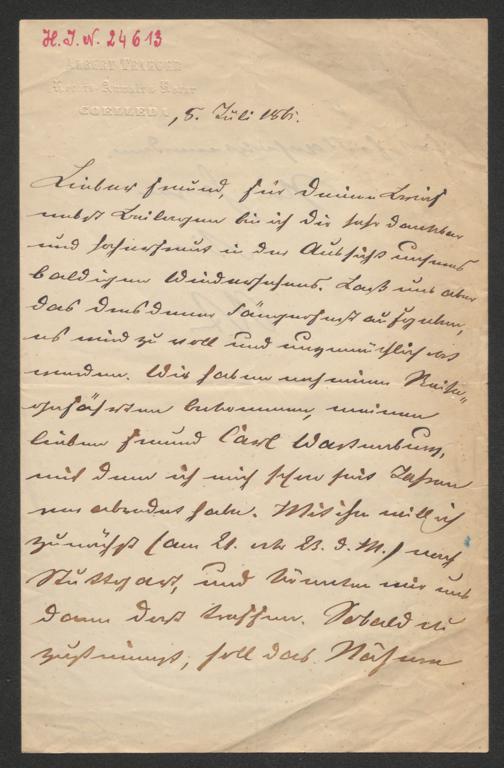 H. I. N. 24613
ALBERT TRAEGER
Rechts-Anwalt & Notar
COELLEDA
, 5. Juli 186.
Lieber Freund, für Deinen Brief
nebst Beilagen bin ich Dir sehr dankbar
und hocherfreut in der Aussicht unseres
baldigen Wiedersehens. Laß uns aber
das Dresdener Sängerfest aufgeben,
es wird zu voll und ungemüthlich dort
werden. Wir haben noch einen Reise-
gefährten bekommen, meinen
lieben Freund Carl Wartenburg,
mit dem ich mich schon seit Jahren
verabredet habe. Mit ihm will ich
zunächst (am 21. oder 23. d. M.) nach
Stuttgart, und könnten wir uns
dann dort treffen. Sobald Du
zustimmst, soll das Nähere